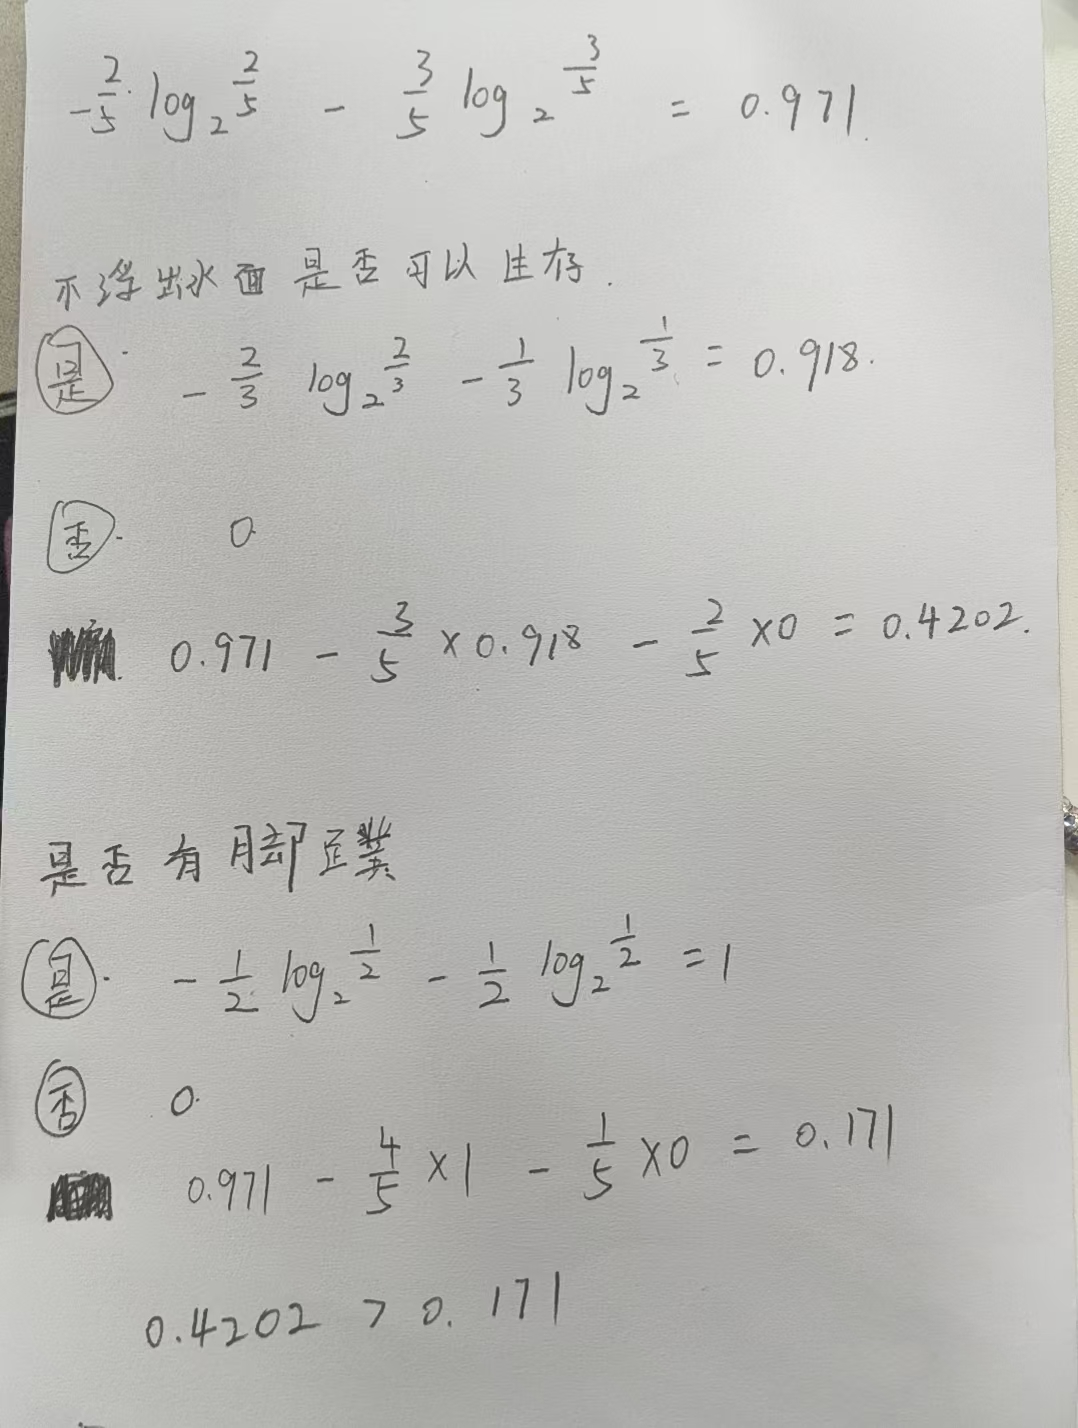 -2/5 log₂ 2/5 - 3/5 log₂ 3/5 = 0.971.
不浮出水面是否可以生存.
是. -2/3 log₂ 2/3 - 1/3 log₂ 1/3 = 0.918.
否. 0.
0.971 - 3/5 ×0.918 - 2/5 ×0 = 0.4202.
是否有脚蹼
是. -1/2 log₂ 1/2 - 1/2 log₂ 1/2 = 1
否 0.
0.971 - 4/5 ×1 - 1/5 ×0 = 0.171
0.4202 > 0.171